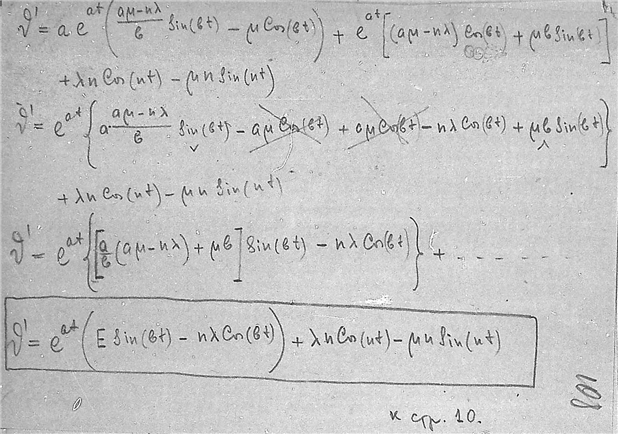 ϑ' = a e^{at} ( \frac{aμ-nλ}{b} Sin(bt) - μ Cos(bt) ) + e^{at} [ (aμ-nλ) Cos(bt) + μb Sin bt) ]
+ λn Cos(nt) - μn Sin(nt)
ϑ' = e^{at} { a \frac{aμ-nλ}{b} Sin(bt) - aμ Cos(bt) + aμ Cos(bt) - nλ Cos(bt) + μb Sin(bt) }
+ λn Cos(nt) - μn Sin(nt)
ϑ' = e^{at} { [ \frac{a}{b} (aμ-nλ) + μb ] Sin(bt) - nλ Cos(bt) } + - - - - - -
ϑ' = e^{at} ( E Sin(bt) - nλ Cos(bt) ) + λn Cos(nt) - μn Sin(nt)
к стр. 10.